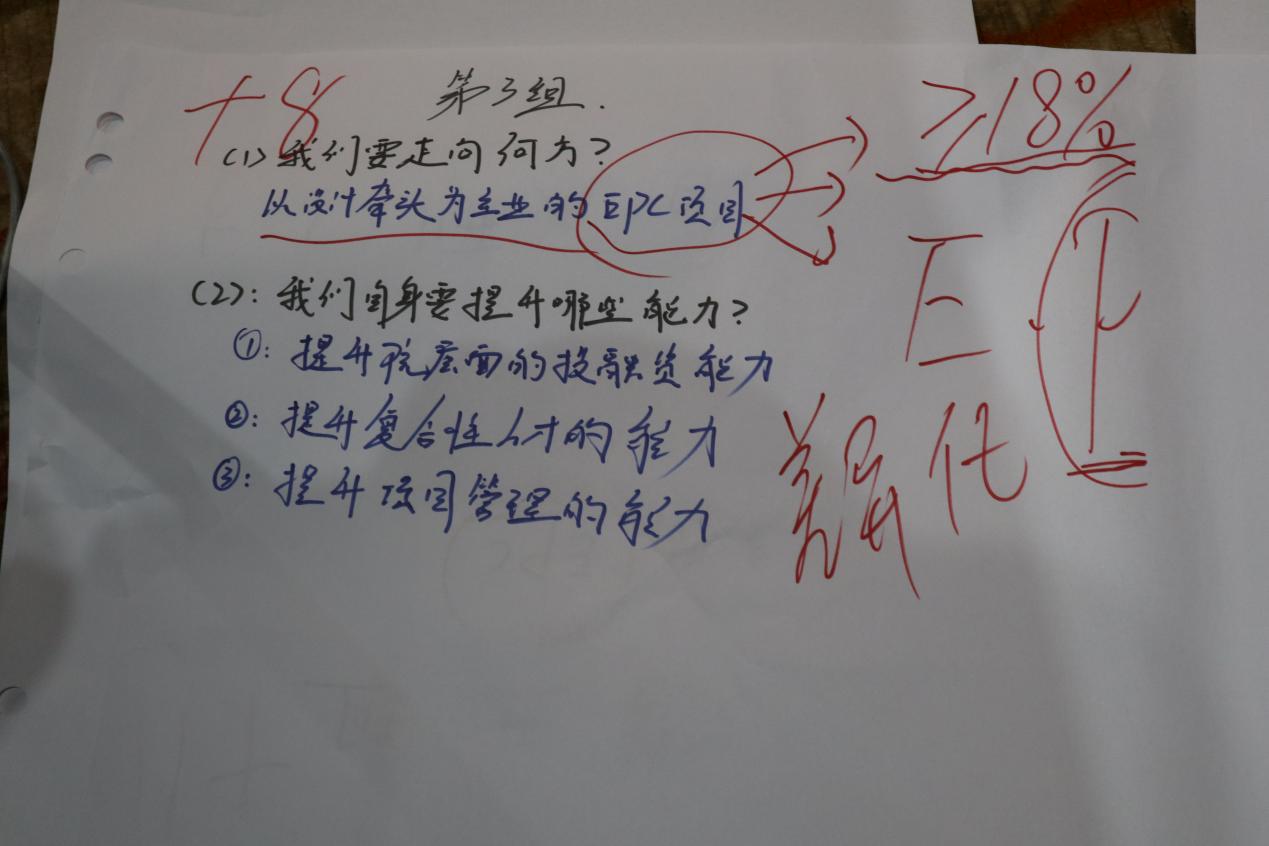 +8
第3组.
≥18%
(1)我们要走向何方?
以设计牵头为主业的EPC项目
E P
(2):我们自身要提升哪些能力?
①:提升院层面的投融资能力
②:提升复合性人才的能力
③:提升项目管理的能力
差异化